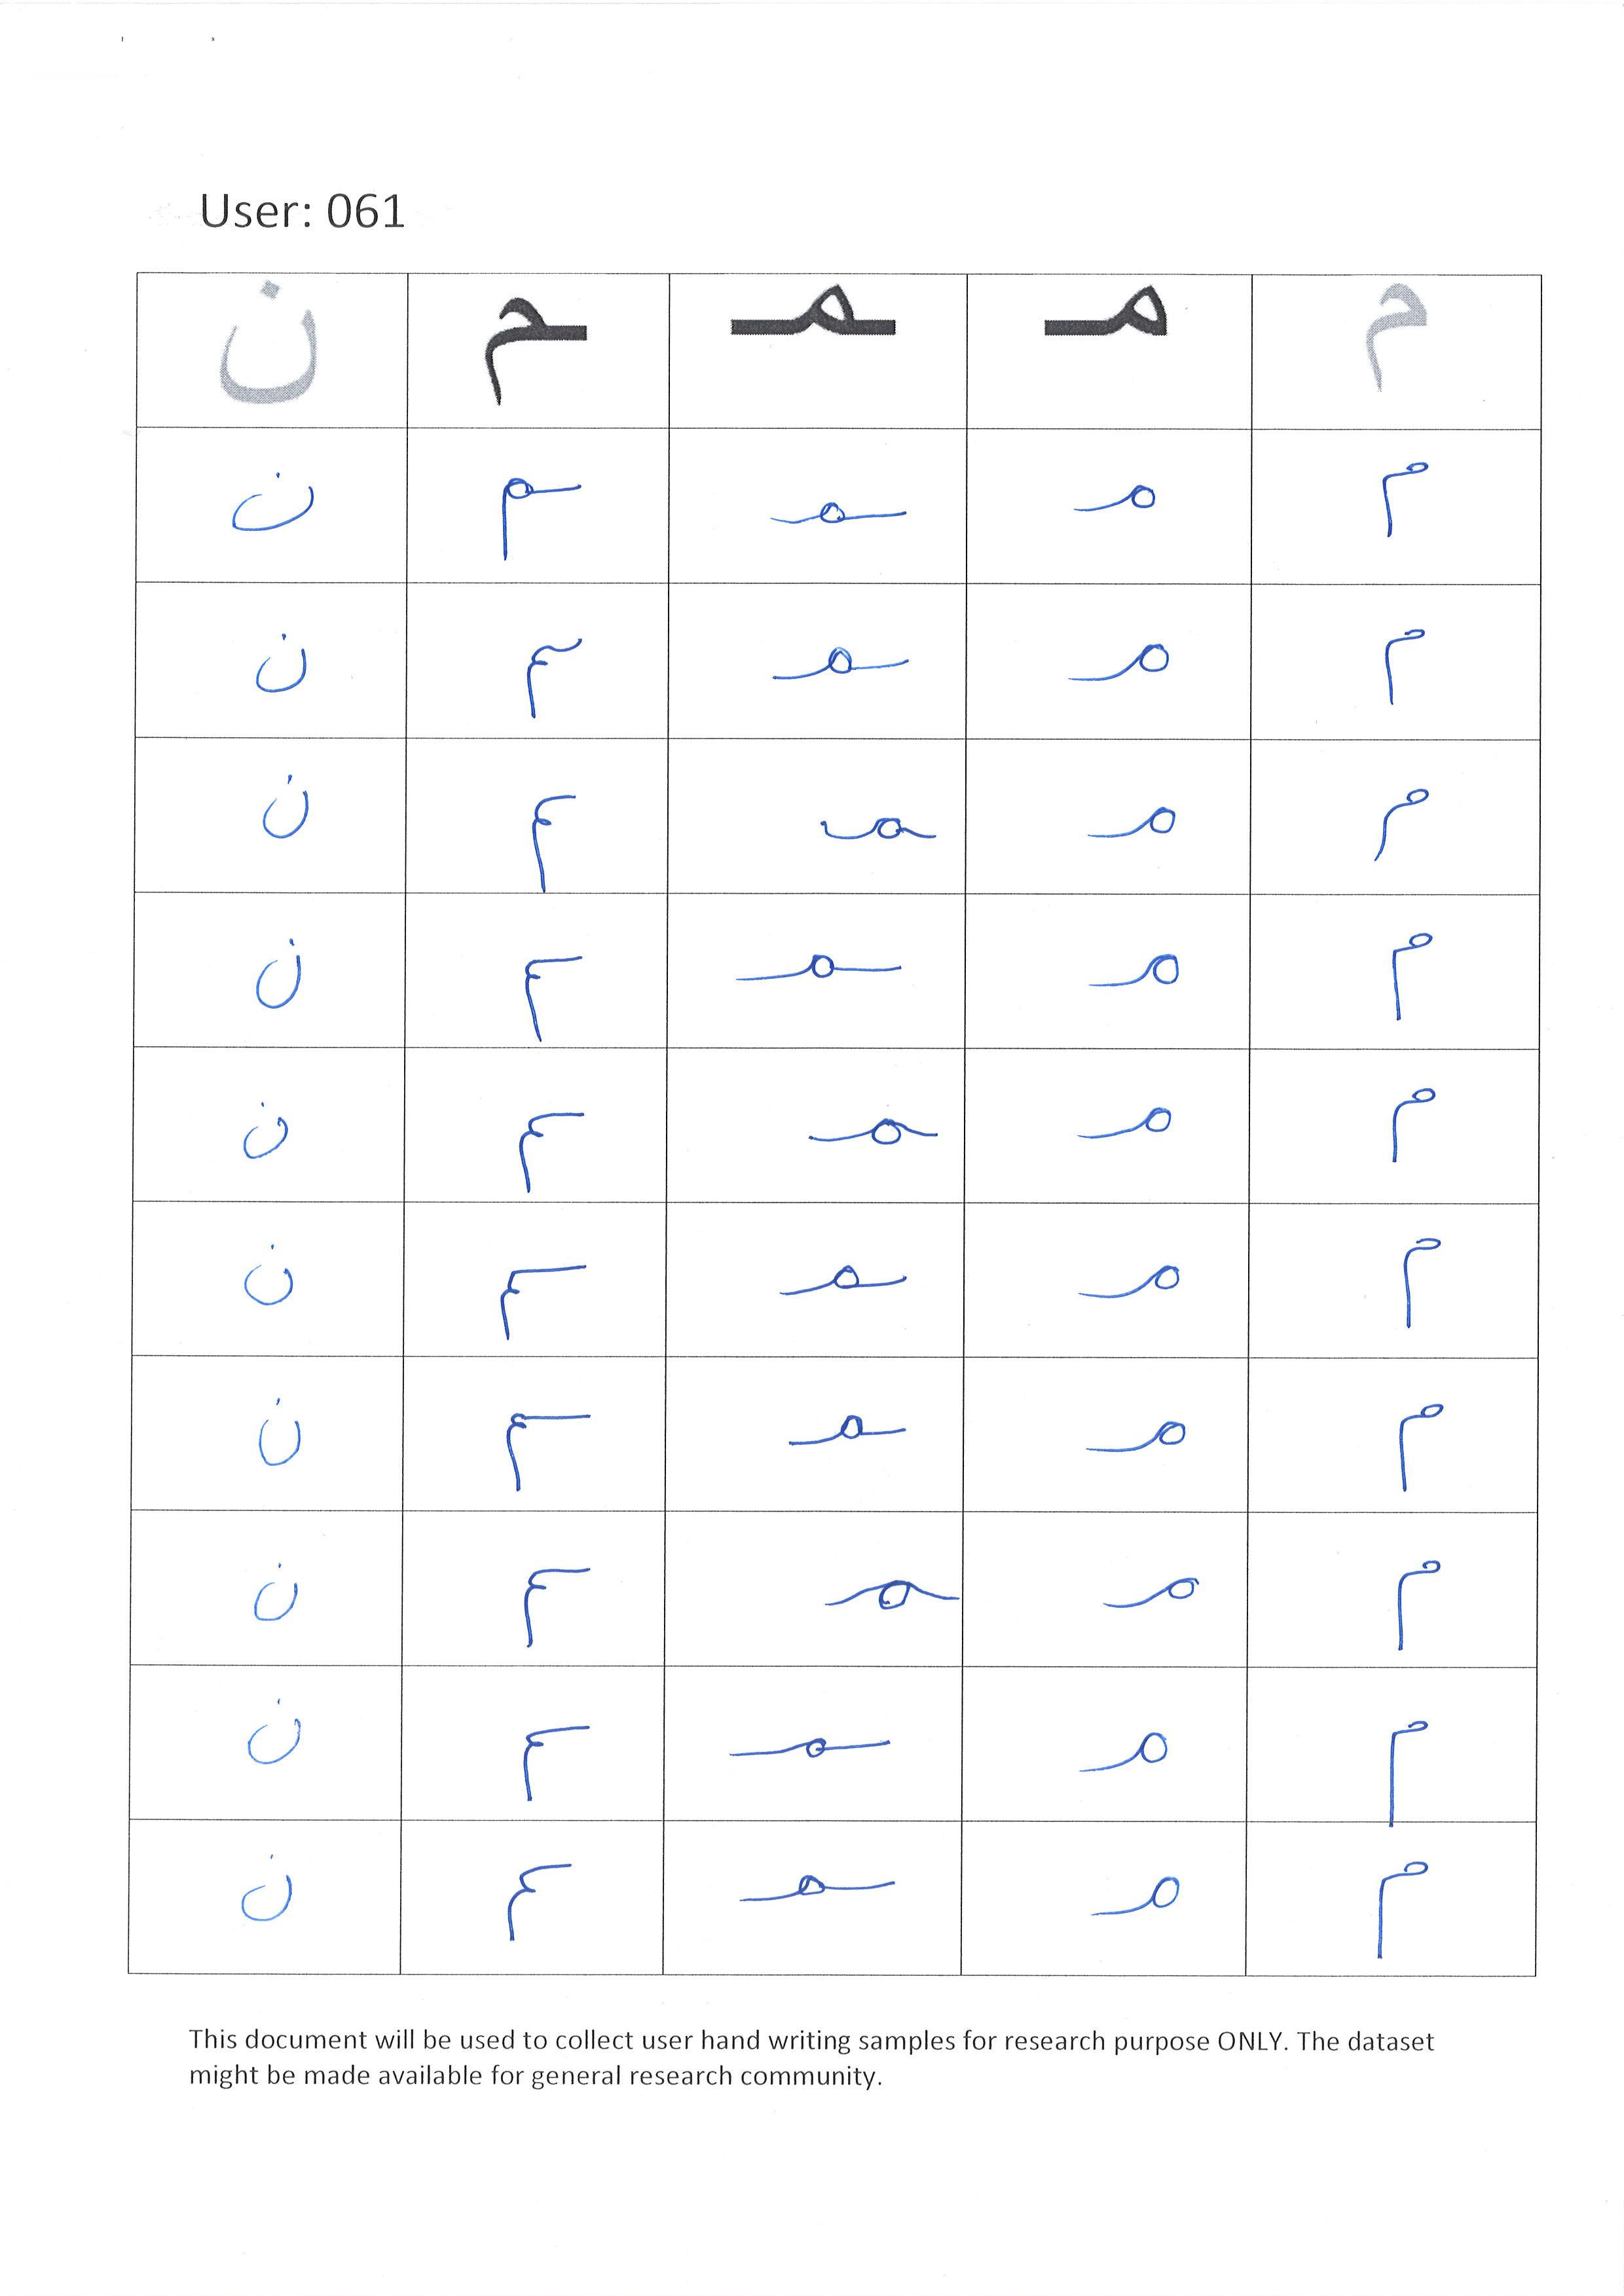 User: 061
م مـ ـمـ ـم ن
م مـ ـمـ ـم ن
م مـ ـمـ ـم ن
م مـ ـمـ ـم ن
م مـ ـمـ ـم ن
م مـ ـمـ ـم ن
م مـ ـمـ ـم ن
م مـ ـمـ ـم ن
م مـ ـمـ ـم ن
م مـ ـمـ ـم ن
م مـ ـمـ ـم ن
This document will be used to collect user hand writing samples for research purpose ONLY. The dataset
might be made available for general research community.